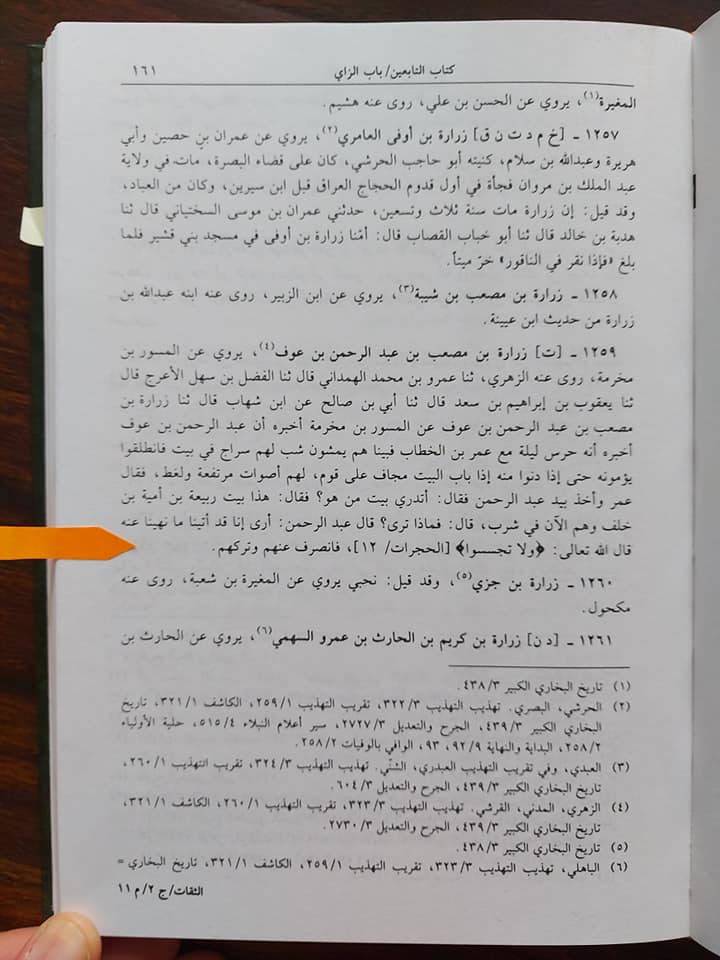 كتاب التابعين/ باب الزاي ١٦١
المغيرة(١)، يروي عن الحسن بن علي، روى عنه هشيم.
١٢٥٧ ـ [خ م د ت ن ق] زرارة بن أوفى العامري(٢)، يروي عن عمران بن حصين وأبي
هريرة وعبدالله بن سلام، كنيته أبو حاجب الحرشي، كان على قضاء البصرة، مات في ولاية
عبد الملك بن مروان فجأة في أول قدوم الحجاج العراق قبل ابن سيرين، وكان من العباد،
وقد قيل: إن زرارة مات سنة ثلاث وتسعين، حدثني عمران بن موسى السختياني قال ثنا
هدبة بن خالد قال ثنا أبو خباب القصاب قال: أمّنا زرارة بن أوفى في مسجد بني قشير فلما
بلغ «فإذا نقر في الناقور» خرّ ميتاً.
١٢٥٨ ـ زرارة بن مصعب بن شيبة(٣)، يروي عن ابن الزبير، روى عنه ابنه عبدالله بن
زرارة من حديث ابن عيينة.
١٢٥٩ ـ [ت] زرارة بن مصعب بن عبد الرحمن بن عوف(٤)، يروي عن المسور بن
مخرمة، روى عنه الزهري، ثنا عمرو بن محمد الهمداني قال ثنا الفضل بن سهل الأعرج قال
ثنا يعقوب بن إبراهيم بن سعد قال ثنا أبي بن صالح عن ابن شهاب قال ثنا زرارة بن
مصعب بن عبد الرحمن بن عوف عن المسور بن مخرمة أخبره أن عبد الرحمن بن عوف
أخبره أنه حرس ليلة مع عمر بن الخطاب فبينا هم يمشون شب لهم سراج في بيت فانطلقوا
يؤمونه حتى إذا دنوا منه إذا باب البيت مجاف على قوم، لهم أصوات مرتفعة ولغط، فقال
عمر وأخذ بيد عبد الرحمن فقال: أتدري بيت من هو؟ فقال: هذا بيت ربيعة بن أمية بن
خلف وهم الآن في شرب، قال: فماذا ترى؟ قال عبد الرحمن: أرى إنا قد أتينا ما نهينا عنه
قال الله تعالى: ﴿ولا تجسسوا﴾ [الحجرات/ ١٢]، فانصرف عنهم وتركهم.
١٢٦٠ ـ زرارة بن جزي(٥)، وقد قيل: نحبي يروي عن المغيرة بن شعبة، روى عنه
مكحول.
١٢٦١ ـ [د ن] زرارة بن كريم بن الحارث بن عمرو السهمي(٦)، يروي عن الحارث بن
(١) تاريخ البخاري الكبير ٤٣٨/٣.
(٢) الحرشي، البصري. تهذيب التهذيب ٣٢٢/٣، تقريب التهذيب ٢٥٩/١، الكاشف ٣٢١/١، تاريخ
البخاري الكبير ٤٣٩/٣، الجرح والتعديل ٢٧٢٧/٣، سير أعلام النبلاء ٥١٥/٤، حلية الأولياء
٢٥٨/٢، البداية والنهاية ٩٢/٩، ٩٣، الوافي بالوفيات ٢٥٨/٢.
(٣) العبدي، وفي تقريب التهذيب العبدري، الشبّي. تهذيب التهذيب ٣٢٤/٣، تقريب التهذيب ٢٦٠/١،
تاريخ البخاري الكبير ٤٣٩/٣، الجرح والتعديل ٦٠٤/٣.
(٤) الزهري، المدني، القرشي. تهذيب التهذيب ٣٢٣/٣، تقريب التهذيب ٢٦٠/١، الكاشف ٣٢١/١،
تاريخ البخاري الكبير ٤٣٩/٣، الجرح والتعديل ٢٧٣٠/٣.
(٥) تاريخ البخاري الكبير ٤٣٨/٣.
(٦) الباهلي، تهذيب التهذيب ٣٢٣/٣، تقريب التهذيب ٢٥٩/١، الكاشف ٣٢١/١، تاريخ البخاري =
الثقات/ ج ٢/ م ١١